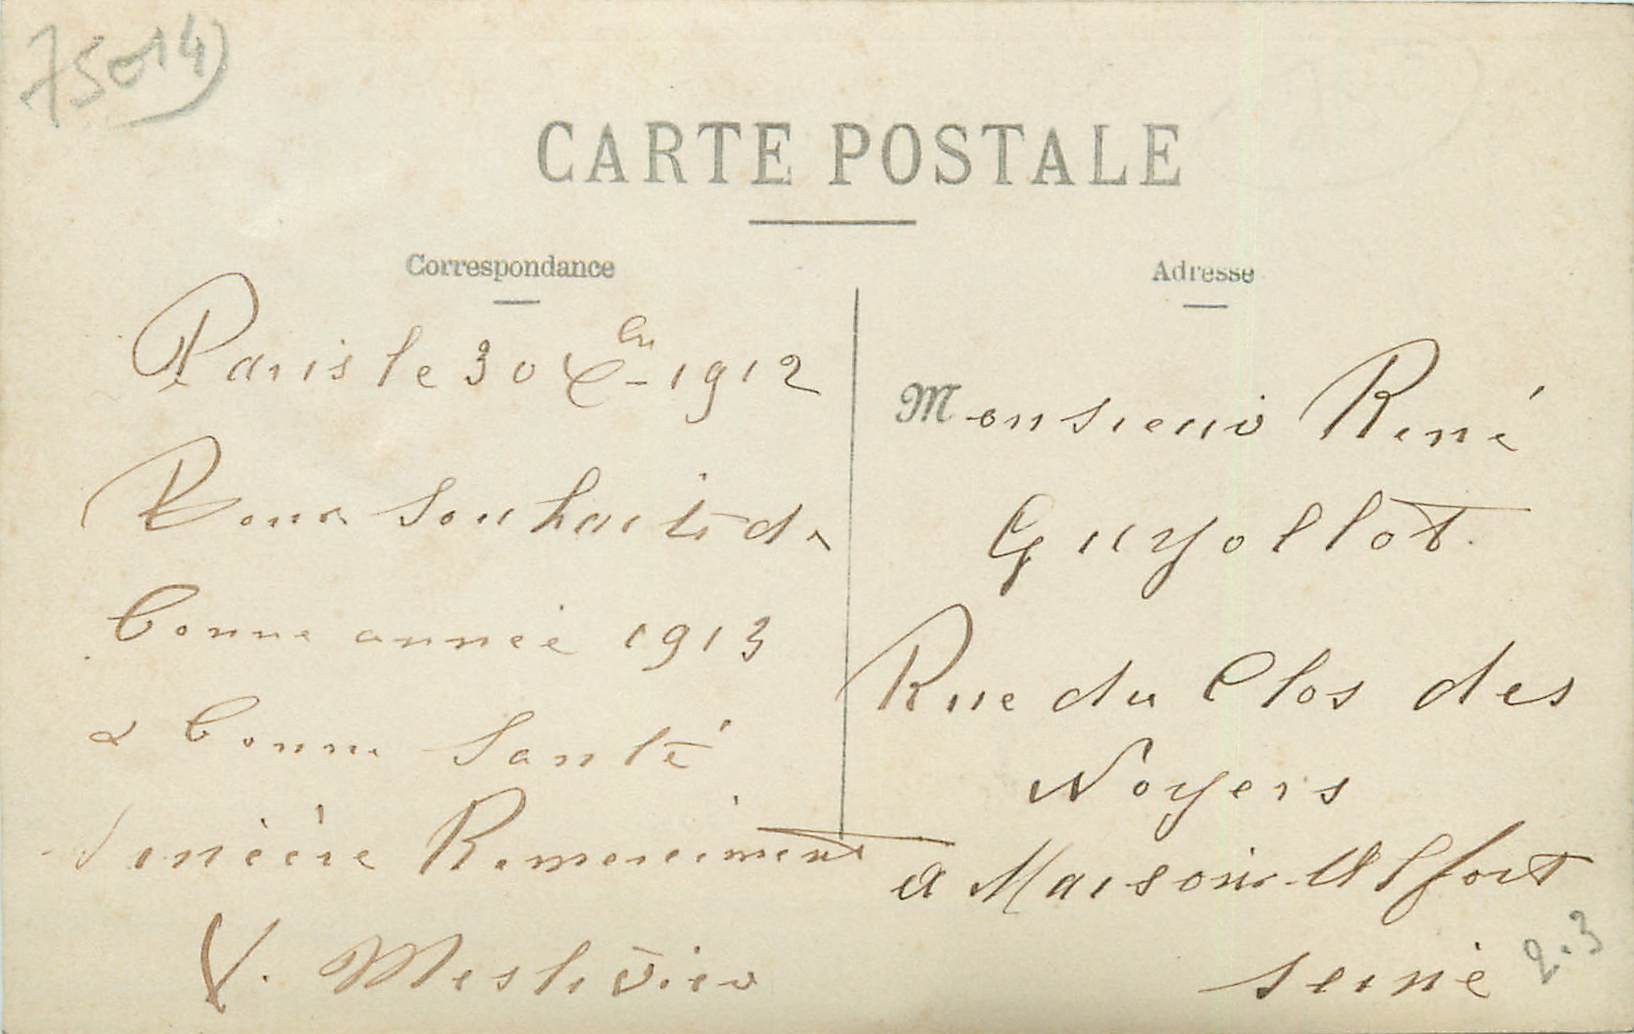 75014
CARTE POSTALE
Correspondance
Paris le 30 Xbre 1912
Bons Souhaits de
bonne année 1913
& bonne Santé
Sincère Remerciment
V.
Adresse
Monsieur René
Guyollot
Rue du Clos des
Noyers
a Maison Alfort
Seine
2.3